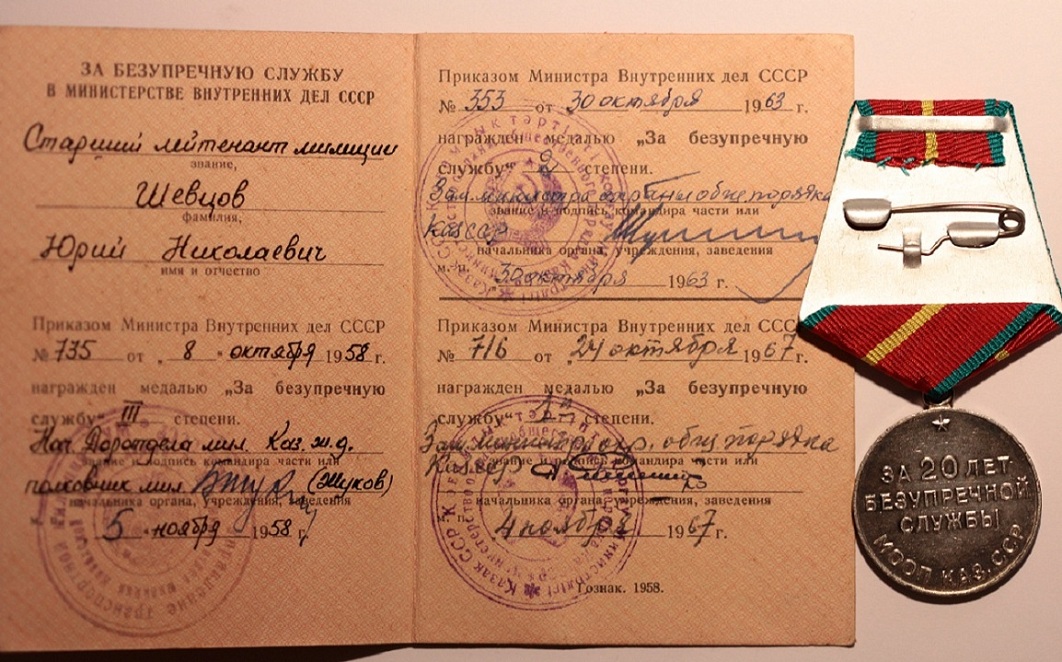 ЗА БЕЗУПРЕЧНУЮ СЛУЖБУ
В МИНИСТЕРСТВЕ ВНУТРЕННИХ ДЕЛ СССР
Старший лейтенант милиции
звание,
Шевцов
фамилия,
Юрий Николаевич
имя и отчество
Приказом Министра Внутренних дел СССР
№ 735 от „ 8 “ октября 1958 г.
награжден медалью „За безупречную
службу“ III степени.
Нач. Дороотдела мил. Каз. ж.д.
звание и подпись командира части или
полковник мил. (Жуков)
начальника органа, учреждения, заведения
„ 5 “ ноября 1958 г.
Приказом Министра Внутренних дел СССР
№ 353 от 30 октября 1963 г.
награжден медалью „За безупречную
службу“ 2 степени.
Зам. министра охраны общ. порядка
звание и подпись командира части или
Каз ССР
начальника органа, учреждения, заведения
м. п. 30 октября 1963 г.
Приказом Министра Внутренних дел СССР
№ 716 от 24 октября 1967 г.
награжден медалью „За безупречную
службу“ 1й степени.
Зам. министра охр. общ. порядка
Каз ССР звание и подпись командира части или
начальника органа, учреждения, заведения
4 ноября 1967 г.
Гознак. 1958.
ЗА 20 ЛЕТ
БЕЗУПРЕЧНОЙ
СЛУЖБЫ
МООП КАЗ. ССР